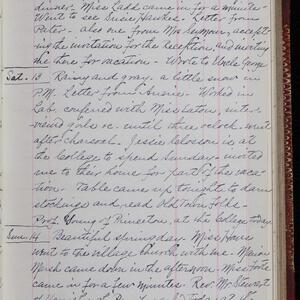 dinner. Miss Ladd came in for a minute -
Went to see Susie Hawkes. Letter from
Peter - also one from Mrs. Seymour, accept-
ing the invitation for the reception, and inviting
me there for vacation - Wrote to Uncle George
Sat. 13 Rainy and gray. a little snow in
P.M. Letter from Susie - Worked in
Lab, conferred with Miss Eaton, inter-
viewed girls &c - until three o'clock - went
after charcoal. Jessie is at
the College to spend Sunday - invited
me to their home for part of the vaca-
tion - came up tonight to darn
stockings and read Old Town Folks -
Prof. Young of Princeton, at the College today
Sun. 14 Beautiful spring day. Miss Howe
went to the village church with me. Marion
came down in the afternoon. Miss
came in for a few minutes. Rev. Mr. Stewart